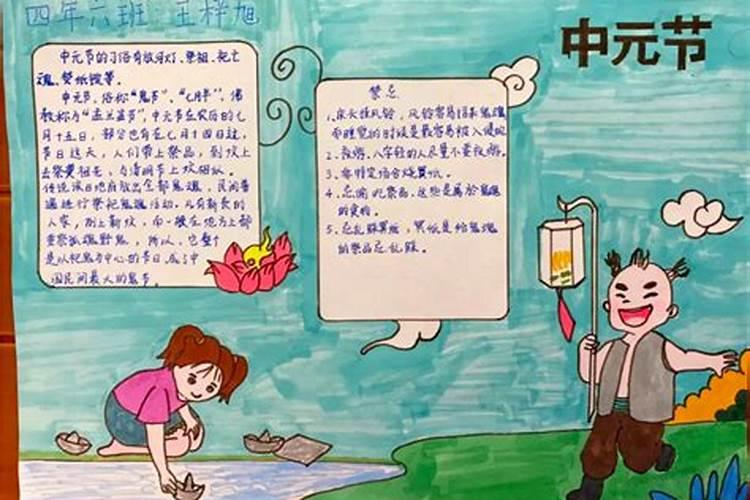 四年六班:王梓旭
中元节
中元节的习俗有放河灯、祭祖、祀亡
魂、焚纸锭等。
中元节,俗称“鬼节”、“七月半”,佛
教称为“盂兰盆节”,中元节在农历的七
月十五日,部分也有在七月十四日这,
节日这天,人们带上祭品,到坟上
去祭奠祖先,与清明节上坟相似。
传说该日地府放出全部鬼魂,民间普
遍进行祭祀鬼魂活动。凡有新丧的
人家,例上新坟,而一般在地方上都
要祭孤魂野鬼,所以,它整个
是以祀鬼为中心的节日,成了中
国民间最大的鬼节。
禁忌
1、床头挂风铃,风铃容易招来鬼魂
而睡觉的时候是最容易被入侵的
2、夜游、八字轻的人尽量不要夜游。
3、非特定场合烧冥纸。
4、忌偷吃祭品,这些是属於鬼魂
的食物。
5、忌乱踩冥纸,冥纸是给鬼魂
的祭品忌乱踩。